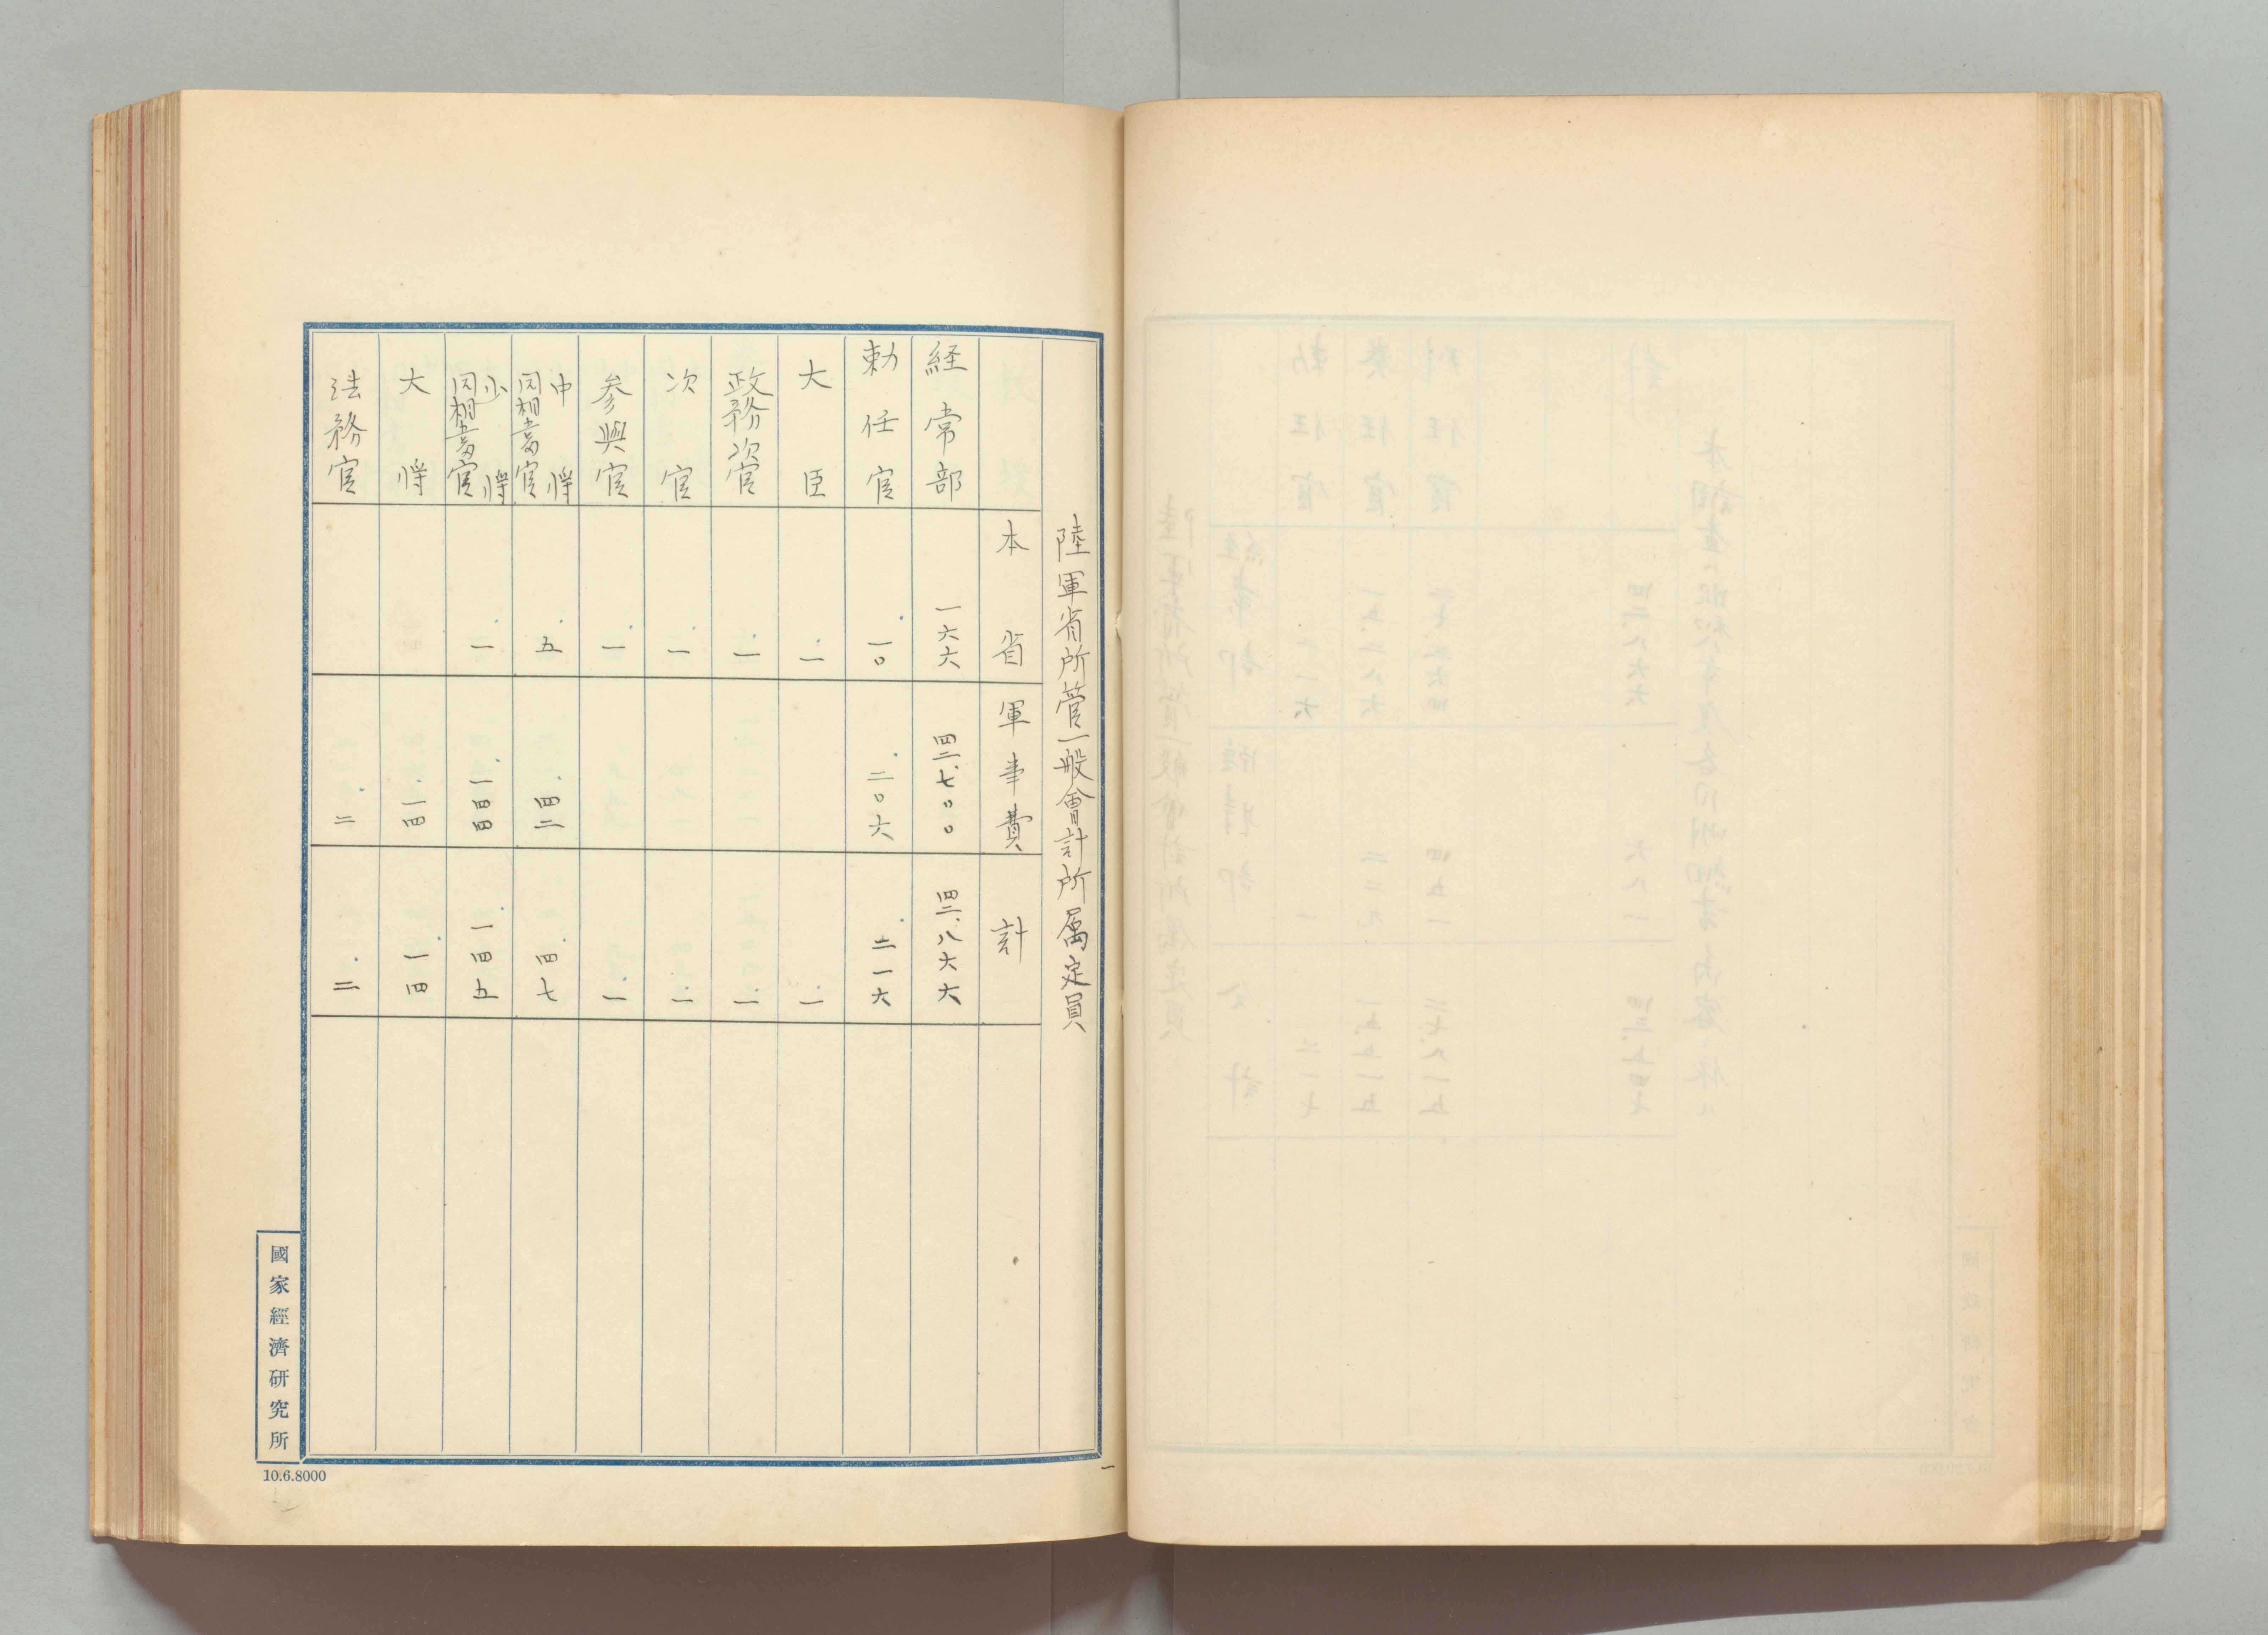 陸軍省所管一般會計所属定員
本省 軍事費 計
経常部 一六六 四二、七〇〇 四二、八六六
勅任官 一〇 二〇六 二一六
大臣 一 一
政務次官 一 一
次官 一 一
参與官 一 一
中将
同相當官 五 四二 四七
少将
同相當官 一 一四四 一四五
大将 一四 一四
法務官 二 二
國家經濟研究所
10.6.8000
一